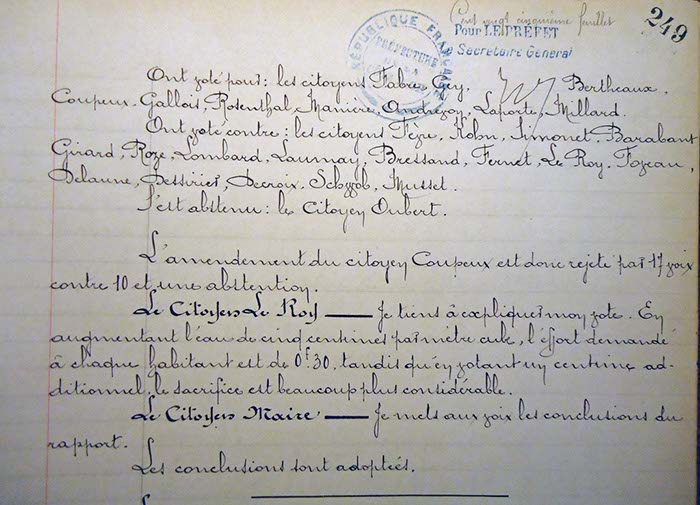 Cent vingt cinquième feuillet
249
RÉPUBLIQUE FRANÇAISE
PRÉFECTURE
Pour LE PRÉFET
Secrétaire Général
Ont voté pour : les citoyens Fabre, Gey, Bertheaux,
Coupeux, Gallois, Rosenthal, Manière, Andrezon, Laporte, Millard.
Ont voté contre : les citoyens Fèvre, Kohn, Simonet, Barabant
Girard, Roze, Lombard, Launay, Bressand, Fernet, Le Roy, Fozeau,
Delaune, Dessirier, Decroix, Musset.
S'est abstenu : le Citoyen Oubert.
L'amendement du citoyen Coupeux est donc rejeté par 17 voix
contre 10 et une abstention.
Le Citoyen Le Roy — Je tiens à expliquer mon vote. En
augmentant l'eau de cinq centimes par mètre cube, l'effort demandé
à chaque habitant est de 0f30, tandis qu'en votant un centime ad-
ditionnel, le sacrifice est beaucoup plus considérable.
Le Citoyen Maire — Je mets aux voix les conclusions du
rapport.
Les conclusions sont adoptées.